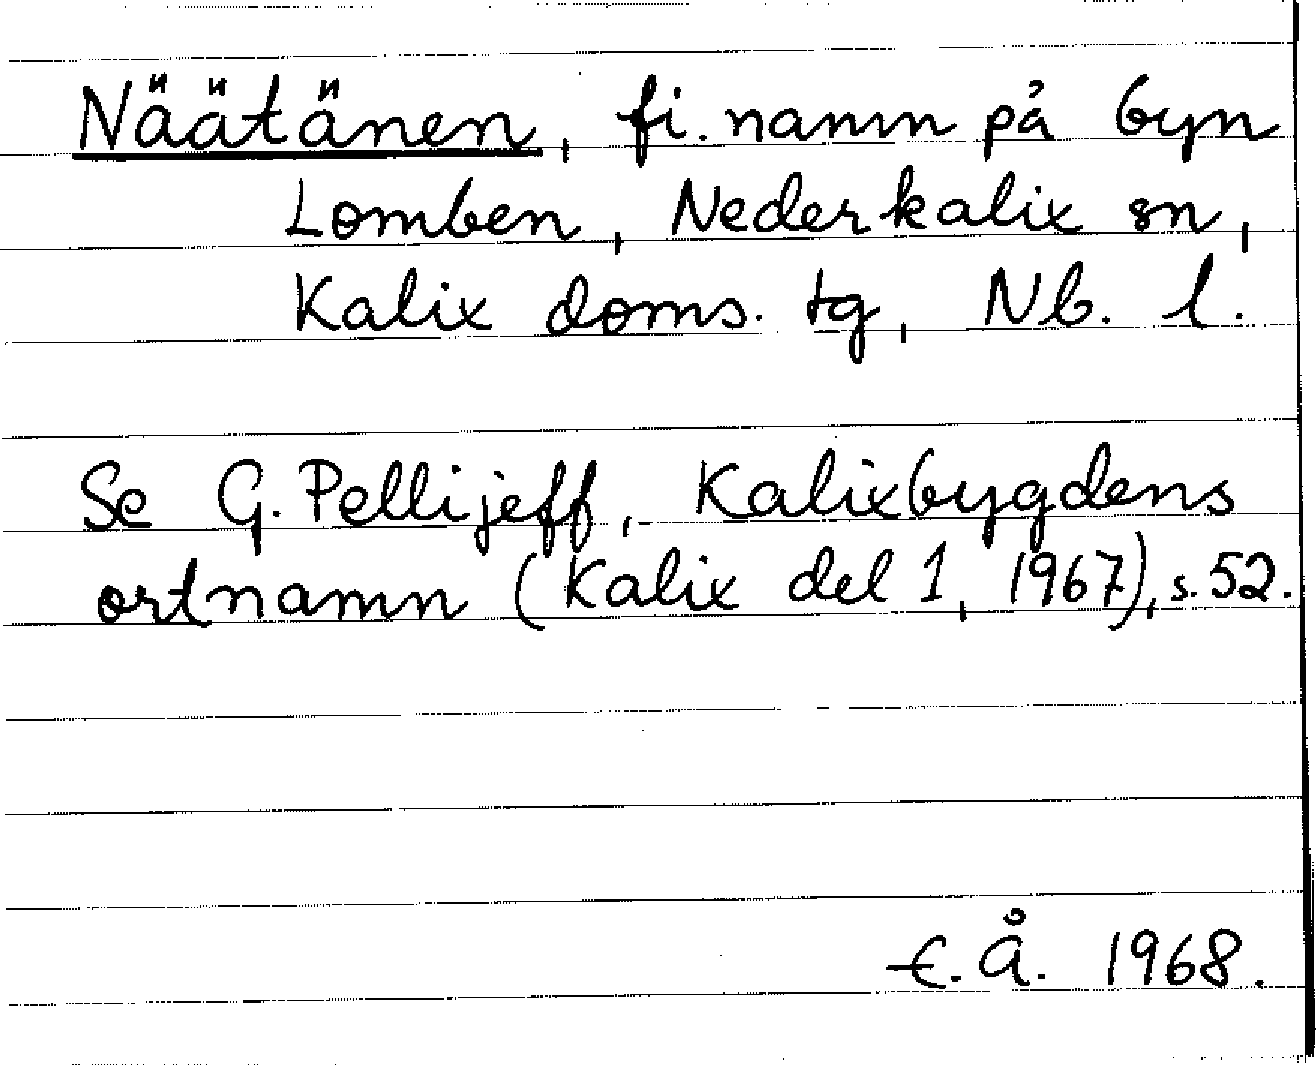 Näätänen, fi. namn på byn
Lomben, Nederkalix sn,
Kalix doms. tg, Nb. l.
Se G. Pellijeff, Kalixbygdens
ortnamn (Kalix del 1, 1967), s. 52.
E. Å. 1968.